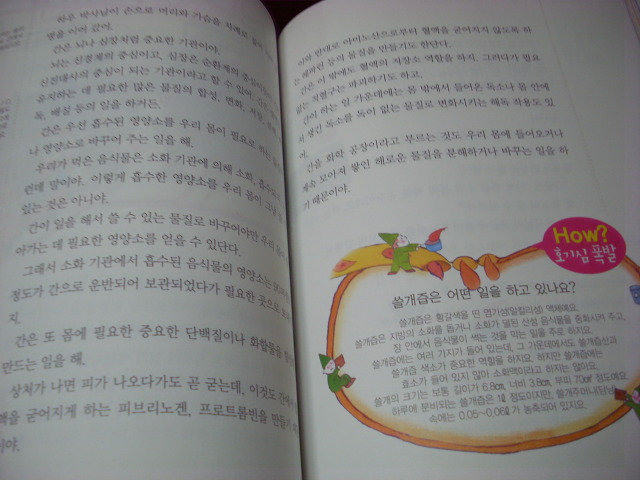 하우 박사님이 손으로 머리와 가슴을 차례로
말을 이어 갔어.
간은 뇌나 심장처럼 중요한 기관이야.
뇌는 신경계의 중심이고, 심장은 순환계의
신진대사의 중심이 되는 기관이라고 할 수 있어.
유지하는 데 필요한 많은 물질의 합성, 변화, 저장,
독, 배설 등의 일을 하거든.
간은 우선 흡수된 영양소를 우리 몸이 필요로 하는
나 영양소로 바꾸어 주는 일을 해.
우리가 먹은 음식물은 소화 기관에 의해 소화, 흡수
런데 말이야. 이렇게 흡수한 영양소를 우리 몸이 그냥
있는 것은 아니야.
간이 일을 해서 쓸 수 있는 물질로 바꾸어야만 우리
아가는 데 필요한 영양소를 얻을 수 있단다.
그래서 소화 기관에서 흡수된 음식물의 영양소는
정도가 간으로 운반되어 보관되었다가 필요한 곳으로
지.
간은 또 몸에 필요한 중요한 단백질이나 화합물을
만드는 일을 해.
상처가 나면 피가 나오다가도 곧 굳는데, 이것도
액을 굳어지게 하는 피브리노겐, 프로트롬빈을 만들기
이야.
이와 반대로 아미노산으로부터 혈액을 굳어지지 않도록 하
는 헤파린 등의 물질을 만들기도 한단다.
간은 이 밖에도 혈액의 저장소 역할을 하지. 그러다가 필요
없는 적혈구는 파괴하기도 하고.
간이 하는 일 가운데에는 몸 밖에서 들어온 독소나 몸 안에
서 생긴 독소를 독이 없는 물질로 변화시키는 해독 작용도 있
어.
간을 화학 공장이라고 부르는 것도 우리 몸에 들어오거나
계속 모아져 쌓인 해로운 물질을 분해하거나 바꾸는 일을 하
기 때문이야.
How?
호기심 폭발
쓸개즙은 어떤 일을 하고 있나요?
쓸개즙은 황갈색을 띤 염기성(알칼리성) 액체예요.
쓸개즙은 지방의 소화를 돕거나 소화가 덜된 산성 음식물을 중화시켜 주고,
장 안에서 음식물이 썩는 것을 막는 일을 주로 하지요.
쓸개즙에는 여러 가지가 들어 있는데, 그 가운데에서도 쓸개즙산과
쓸개즙 색소가 중요한 역할을 하지요. 하지만 쓸개즙에는
효소가 들어 있지 않아 소화액이라고 하지는 않아요.
쓸개의 크기는 보통 길이가 6.8cm, 너비 3.8cm, 부피 70㎖ 정도예요.
하루에 분비되는 쓸개즙은 1ℓ 정도이지만, 쓸개주머니
속에는 0.05~0.06ℓ가 농축되어 있지요.